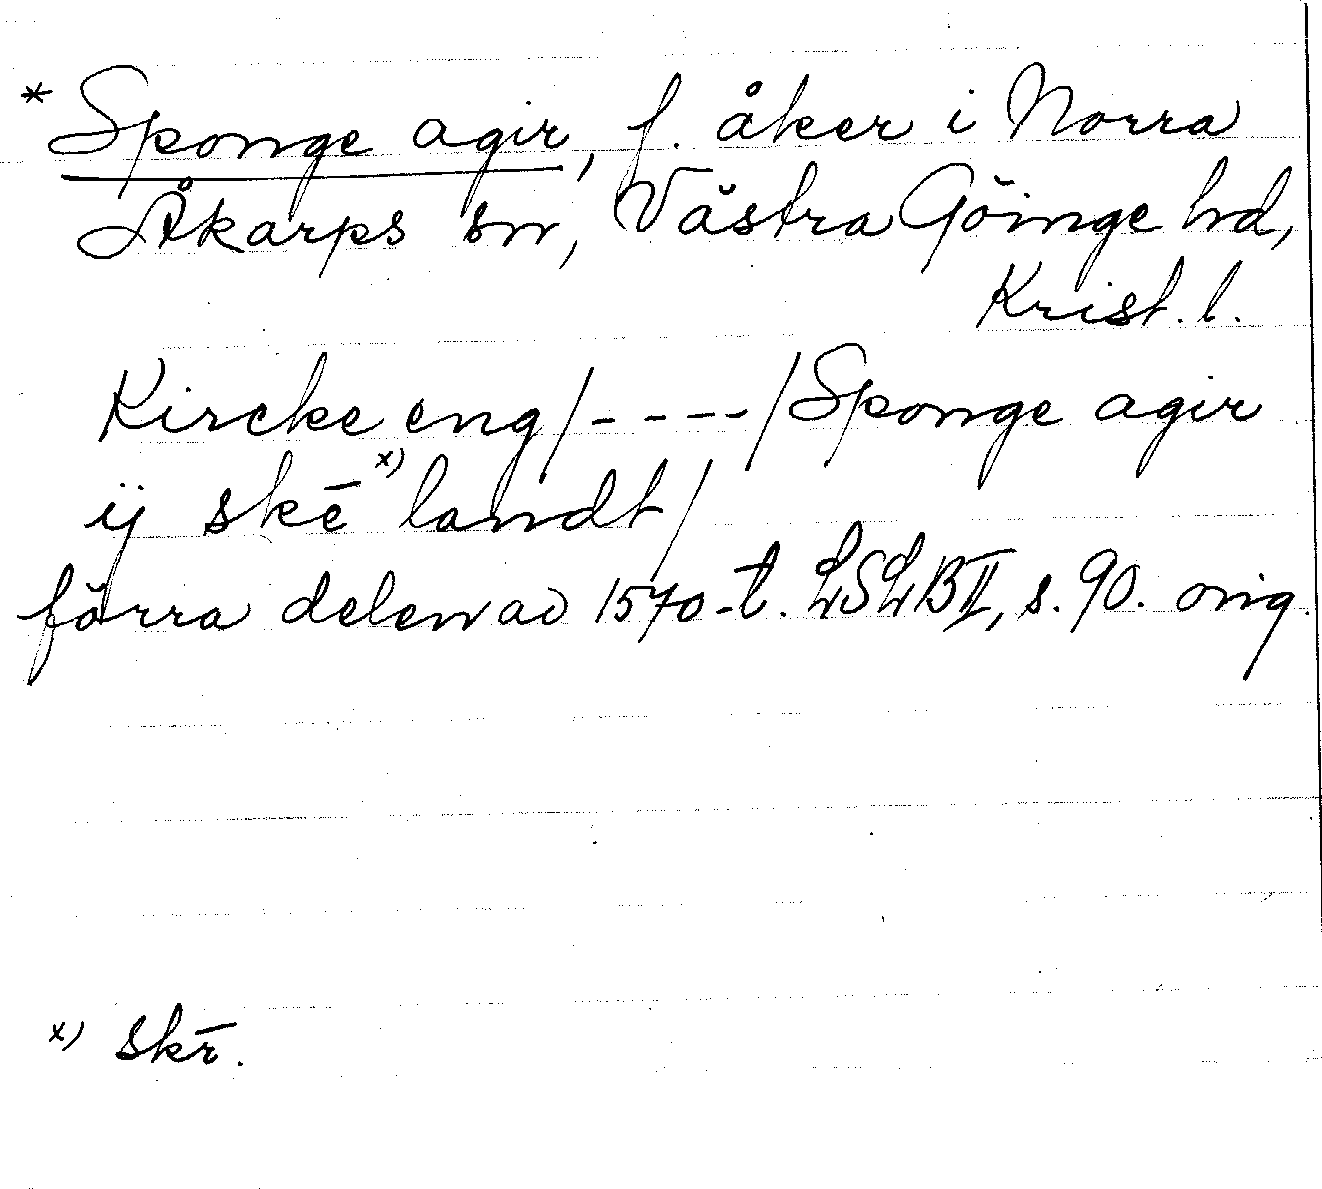 * Sponge agir, f. åker i Norra
Åkarps sn, Västra Göinge hd,
Krist. l.
Kircke eng /----/ Sponge agir
ij skē x) landt /
förra delen av 1570-t. LSLB II, s. 90. orig.
x) skr̄.